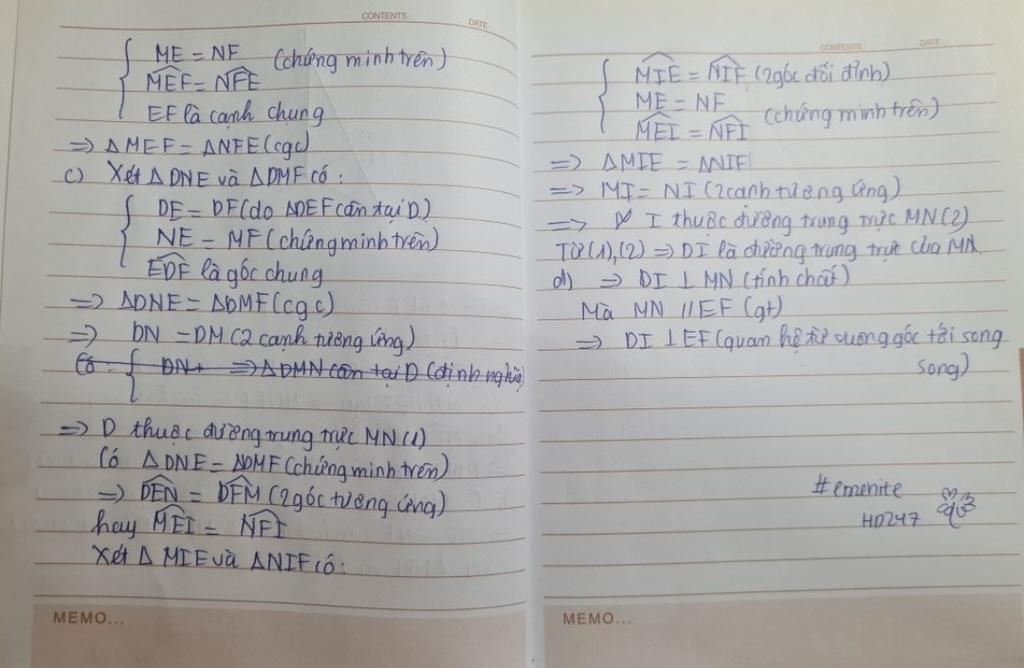 CONTENTS:
DATE:
ME = NF (chứng minh trên)
MEF = NFE
EF là cạnh chung
=> ΔMEF = ΔNFE (cgc)
c) Xét ΔDNE và ΔDMF có:
DE = DF (do ΔDEF cân tại D)
NE = MF (chứng minh trên)
EDF là góc chung
=> ΔDNE = ΔDMF (cgc)
=> DN = DM (2 cạnh tương ứng)
Có DN+ => ΔDMN cân tại D (định nghĩa)
=> D thuộc đường trung trực MN (1)
Có ΔDNE = ΔDMF (chứng minh trên)
=> DEN = DFM (2 góc tương ứng)
hay MEI = NFI
Xét Δ MIE và ΔNIF có:
MEMO...
CONTENTS
DATE
MIE = NIF (2 góc đối đỉnh)
ME = NF
(chứng minh trên)
MEI = NFI
=> ΔMIE = ΔNIF
=> MI = NI (2 cạnh tương ứng)
=> I thuộc đường trung trực MN (2)
Từ (1), (2) => DI là đường trung trực của MN
d) => DI ⊥ MN (tính chất)
Mà MN // EF (gt)
=> DI ⊥ EF (quan hệ từ vuông góc tới song
song)
#emenite
HD247
MEMO...